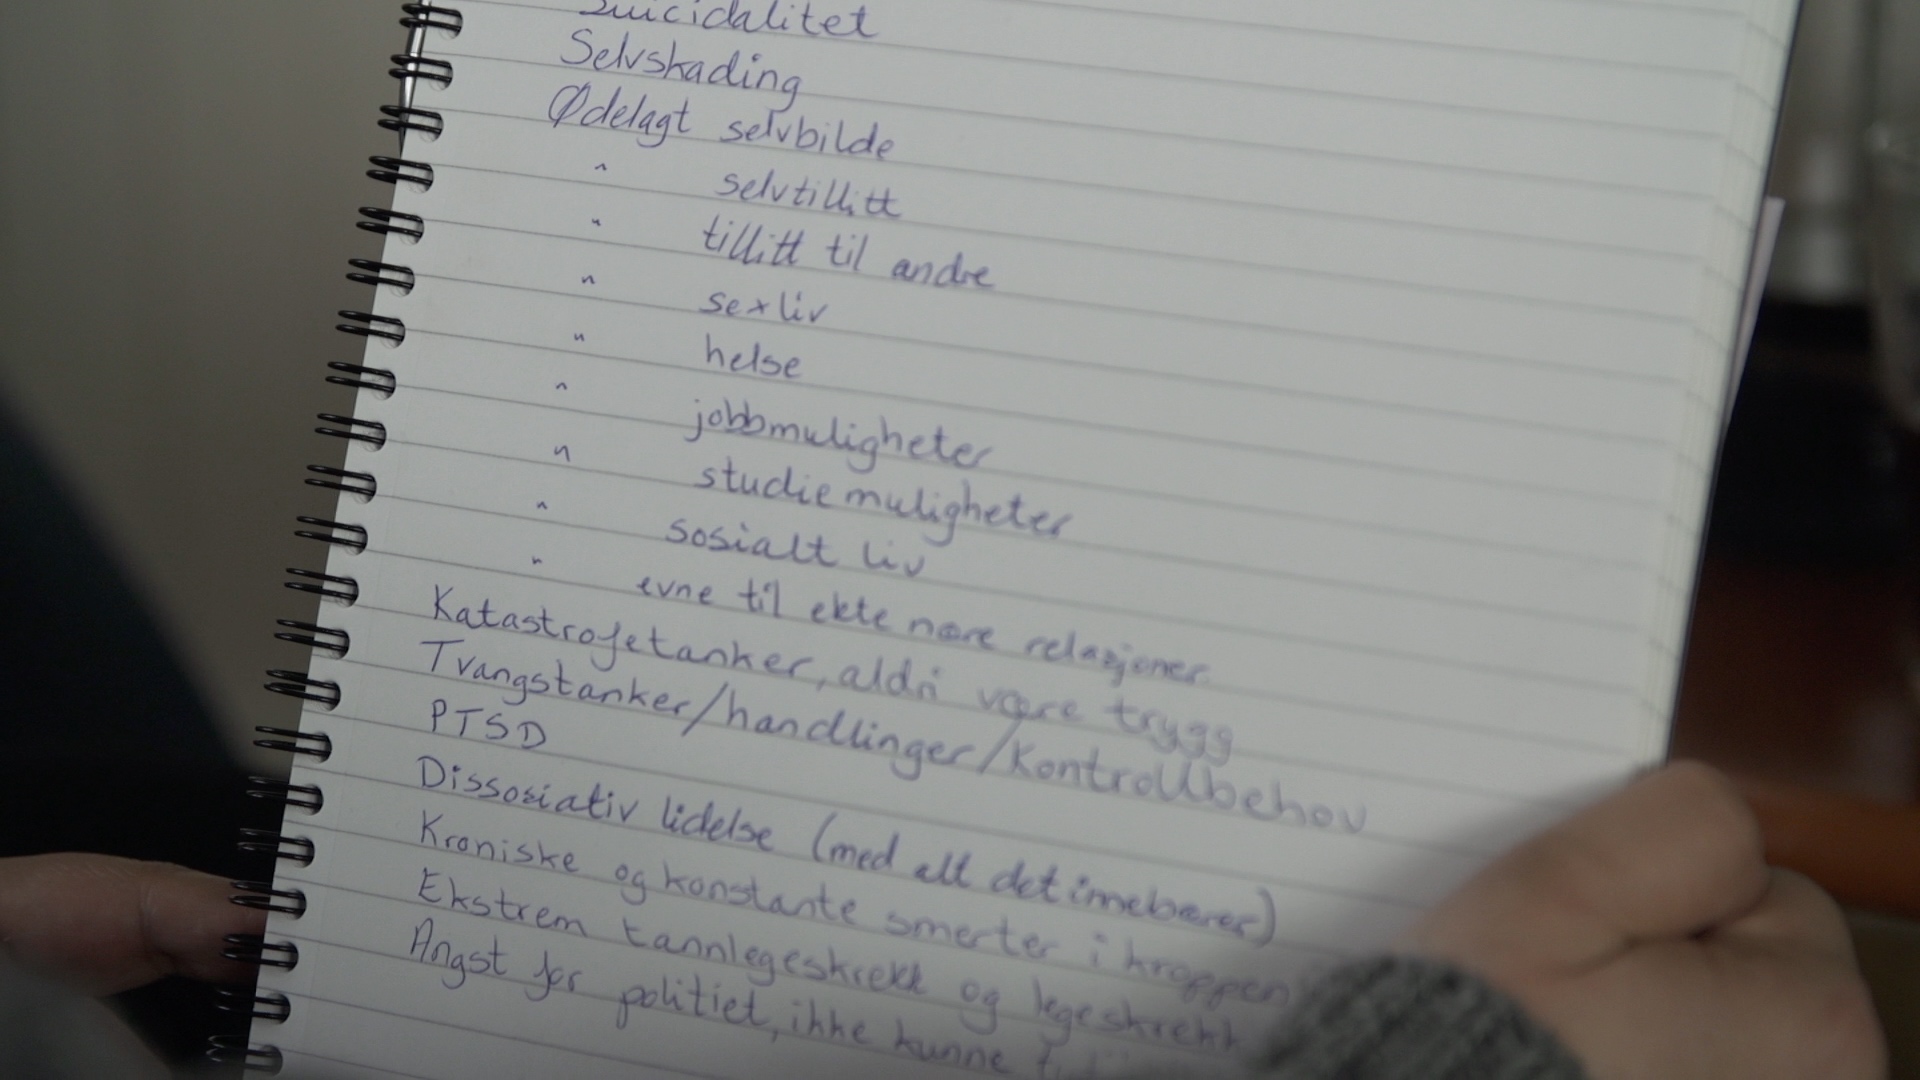 Suicidalitet
Selvskading
Ødelagt selvbilde
" selvtillitt
" tillitt til andre
" sexliv
" helse
" jobbmuligheter
" studiemuligheter
" sosialt liv
" evne til ekte nære relasjoner
Katastrofetanker, aldri være trygg
Tvangstanker/handlinger/Kontrollbehov
PTSD
Dissosiativ lidelse (med alt det innebærer)
Kroniske og konstante smerter i kroppen
Ekstrem tannlegeskrekk og legeskrekk
Angst for politiet, ikke kunne